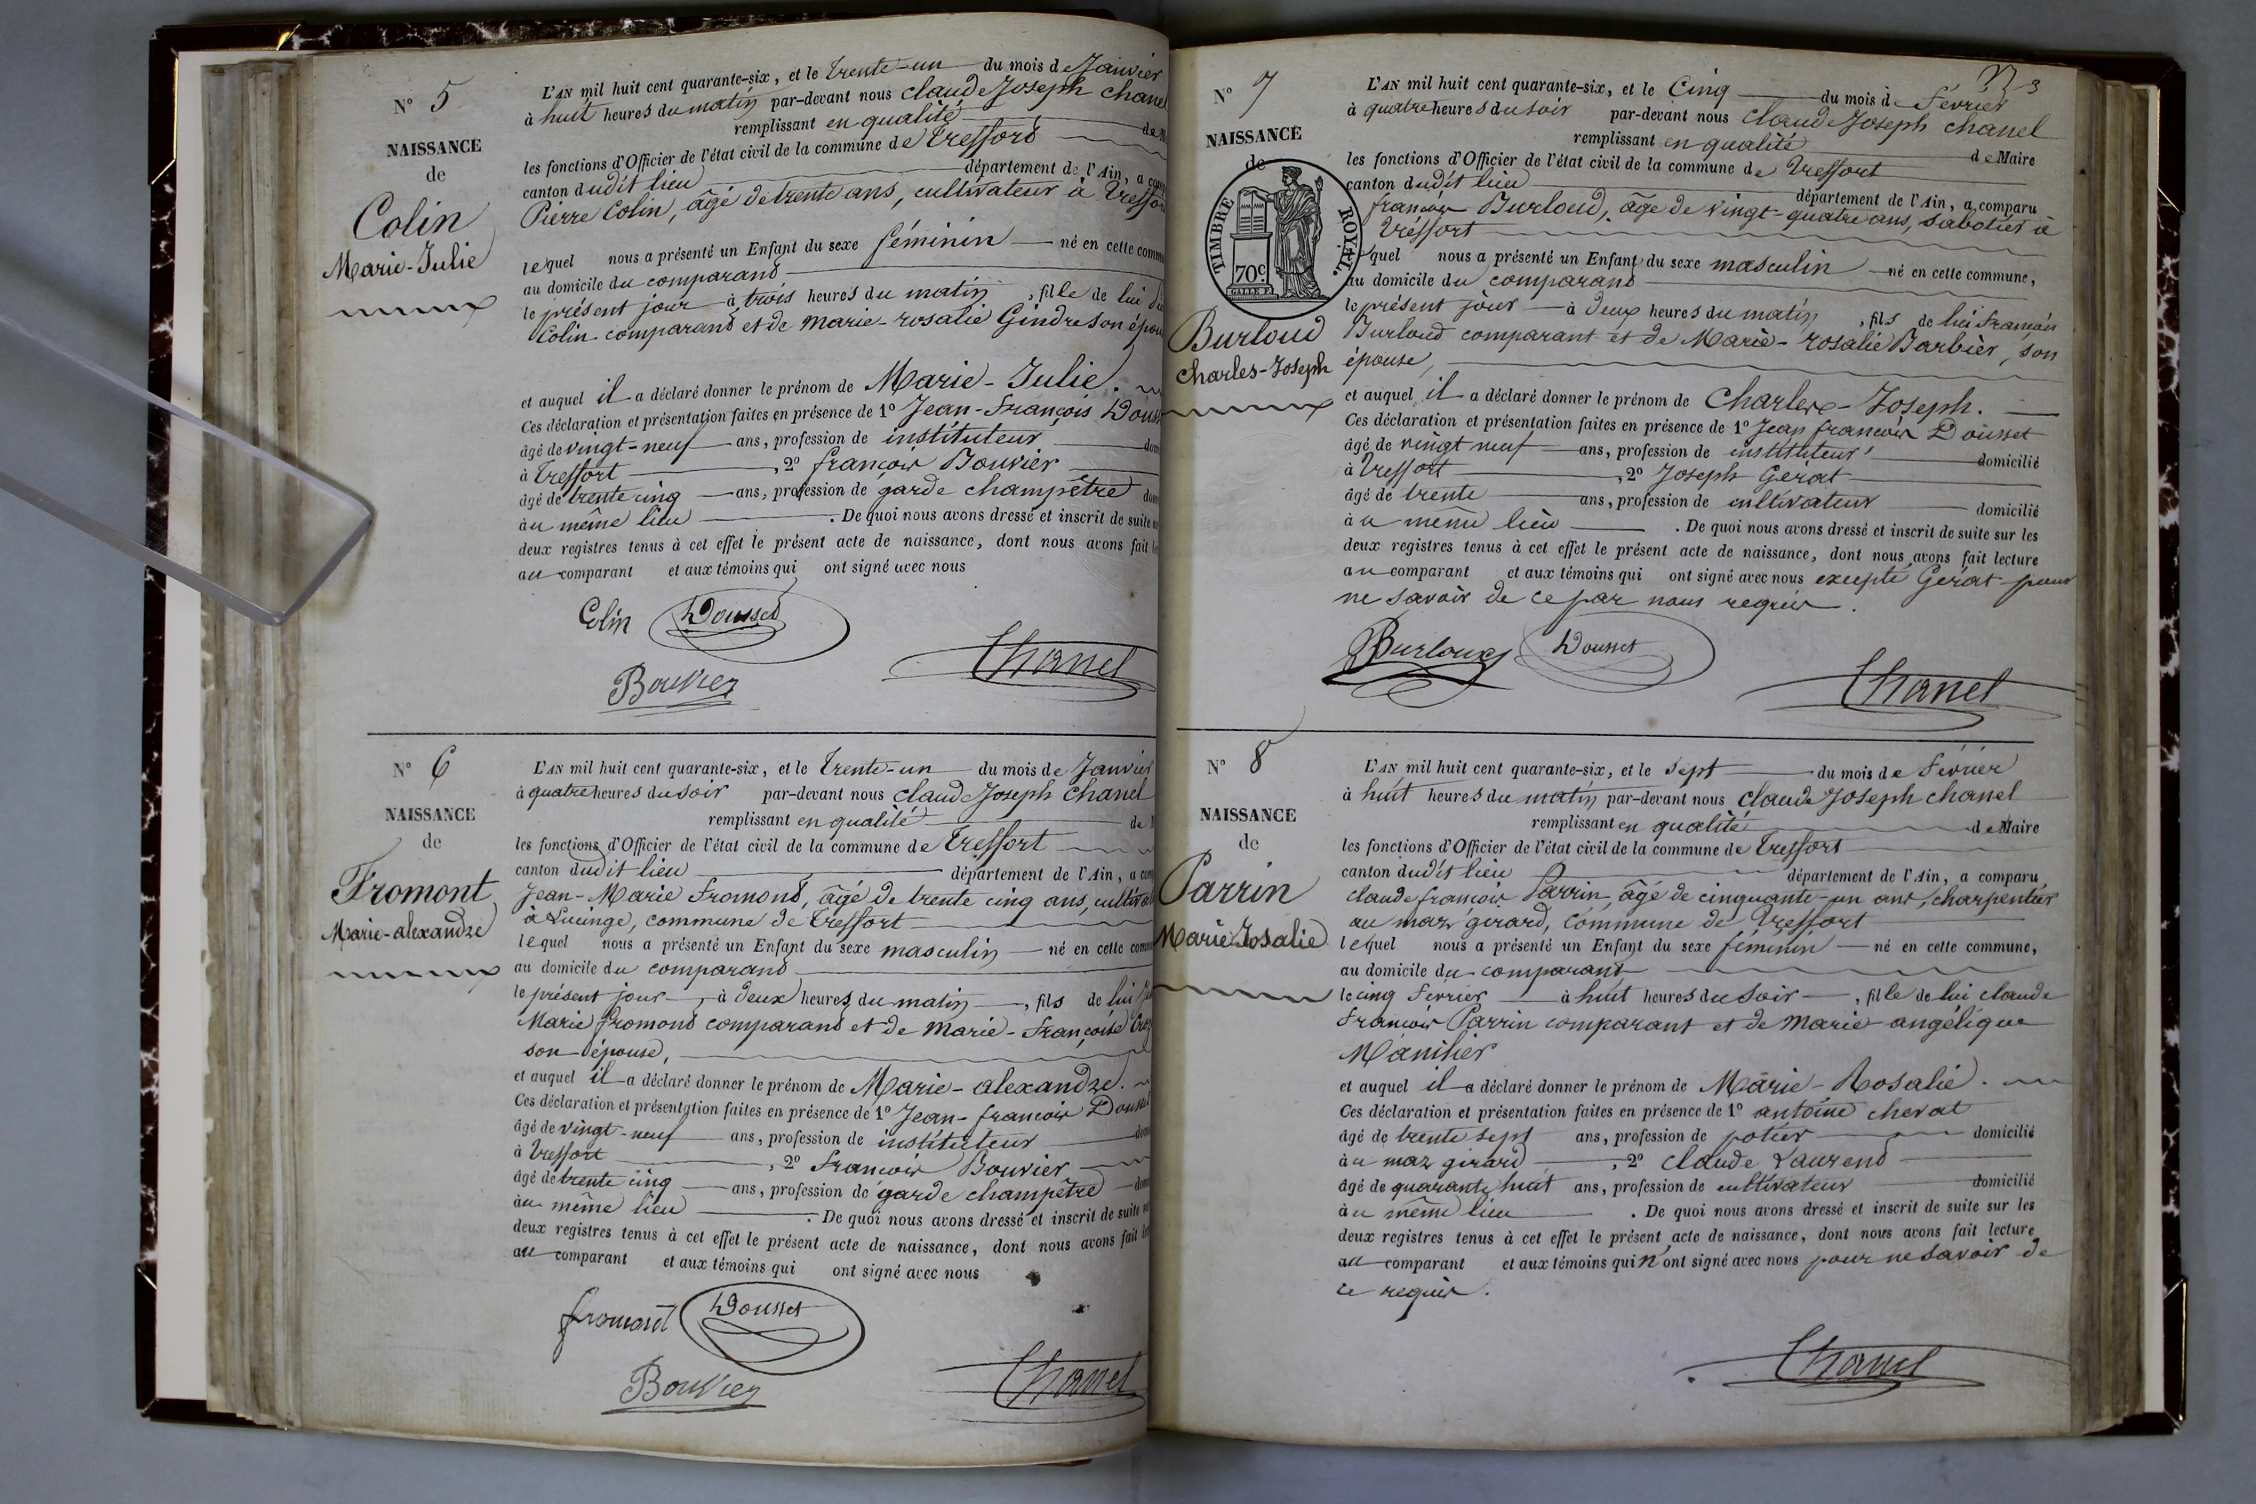 N° 5
NAISSANCE
de
Colin
Marie-Julie
L'AN mil huit cent quarante-six, et le trente-un du mois de Janvier
à huit heures du matin par-devant nous claude Joseph chanel
remplissant en qualité de M
les fonctions d'Officier de l'état civil de la commune de Treffort
canton dudit lieu département de l'Ain, a com
Pierre Colin, âgé de trente ans, cultivateur à Treffort
lequel nous a présenté un Enfant du sexe féminin né en cette commu
au domicile du comparant
le présent jour à trois heures du matin, fille de lui
Colin comparant et de marie-rosalie Gindre son épou
et auquel il a déclaré donner le prénom de Marie-Julie.
Ces déclaration et présentation faites en présence de 1° Jean-françois Douss
âgé de vingt-neuf ans, profession de instituteur dom
à Treffort, 2° françois Bouvier
âgé de trente cinq ans, profession de garde champêtre dom
àu même lieu. De quoi nous avons dressé et inscrit de suite
deux registres tenus à cet effet le présent acte de naissance, dont nous avons fait
au comparant et aux témoins qui ont signé avec nous
Colin Dousset
Bouvier Chanel
N° 6
NAISSANCE
de
Fromont
Marie-alexandre
L'AN mil huit cent quarante-six, et le trente-un du mois de Janvier
à quatre heures du soir par-devant nous claude Joseph chanel
remplissant en qualité de
les fonctions d'Officier de l'état civil de la commune de Treffort
canton dudit lieu département de l'Ain, a com
Jean-Marie Fromont, âgé de trente cinq ans, cultivat
à Lucinge, commune de Treffort
lequel nous a présenté un Enfant du sexe masculin né en cette comm
au domicile du comparant
le présent jour, à deux heures du matin, fils de lui
Marie fromont comparant et de marie-françoise
son épouse,
et auquel il a déclaré donner le prénom de Marie-alexandre.
Ces déclaration et présentation faites en présence de 1° Jean-françois Dousset
âgé de vingt-neuf ans, profession de instituteur dom
à Treffort, 2° françois Bouvier
âgé de trente cinq ans, profession de garde champêtre dom
àu même lieu. De quoi nous avons dressé et inscrit de suite
deux registres tenus à cet effet le présent acte de naissance, dont nous avons fait
au comparant et aux témoins qui ont signé avec nous
fromont Dousset
Bouvier Chanel
3
N° 7
NAISSANCE
de
TIMBRE ROYAL.
70c
Burloud
charles-Joseph
L'AN mil huit cent quarante-six, et le cinq du mois de février
à quatre heures du soir par-devant nous claude Joseph chanel
remplissant en qualité de Maire
les fonctions d'Officier de l'état civil de la commune de Treffort
canton dudit lieu département de l'Ain, a comparu
françois Burloud, âgé de vingt-quatre ans, sabotier à
Treffort
lequel nous a présenté un Enfant du sexe masculin né en cette commune,
au domicile du comparant
le présent jour à deux heures du matin, fils de lui françois
Burloud comparant et de Marie-rosalie Barbier, son
épouse,
et auquel il a déclaré donner le prénom de Charles-Joseph.
Ces déclaration et présentation faites en présence de 1° Jean françois Dousset
âgé de vingt neuf ans, profession de instituteur domicilié
à Treffort, 2° Joseph Gerat
âgé de trente ans, profession de cultivateur domicilié
àu même lieu. De quoi nous avons dressé et inscrit de suite sur les
deux registres tenus à cet effet le présent acte de naissance, dont nous avons fait lecture
au comparant et aux témoins qui ont signé avec nous excepté Gerat pour
ne savoir de ce par nous requis.
Burloud Dousset
Chanel
N° 8
NAISSANCE
de
Parrin
Marie Rosalie
L'AN mil huit cent quarante-six, et le sept du mois de février
à huit heures du matin par-devant nous claude Joseph chanel
remplissant en qualité de Maire
les fonctions d'Officier de l'état civil de la commune de Treffort
canton dudit lieu département de l'Ain, a comparu
claude françois Parrin, âgé de cinquante-un ans, charpentier
au maz girard, commune de Treffort
lequel nous a présenté un Enfant du sexe féminin né en cette commune,
au domicile du comparant
le cinq février à huit heures du soir, fille de lui claude
françois Parrin comparant et de marie angélique
Manilier
et auquel il a déclaré donner le prénom de Marie-Rosalie.
Ces déclaration et présentation faites en présence de 1° antoine chevat
âgé de trente sept ans, profession de potier domicilié
àu maz girard, 2° claude Laurend
âgé de quarante huit ans, profession de cultivateur domicilié
àu même lieu. De quoi nous avons dressé et inscrit de suite sur les
deux registres tenus à cet effet le présent acte de naissance, dont nous avons fait lecture
au comparant et aux témoins qui n'ont signé avec nous pour ne savoir de
ce requis.
Chanel